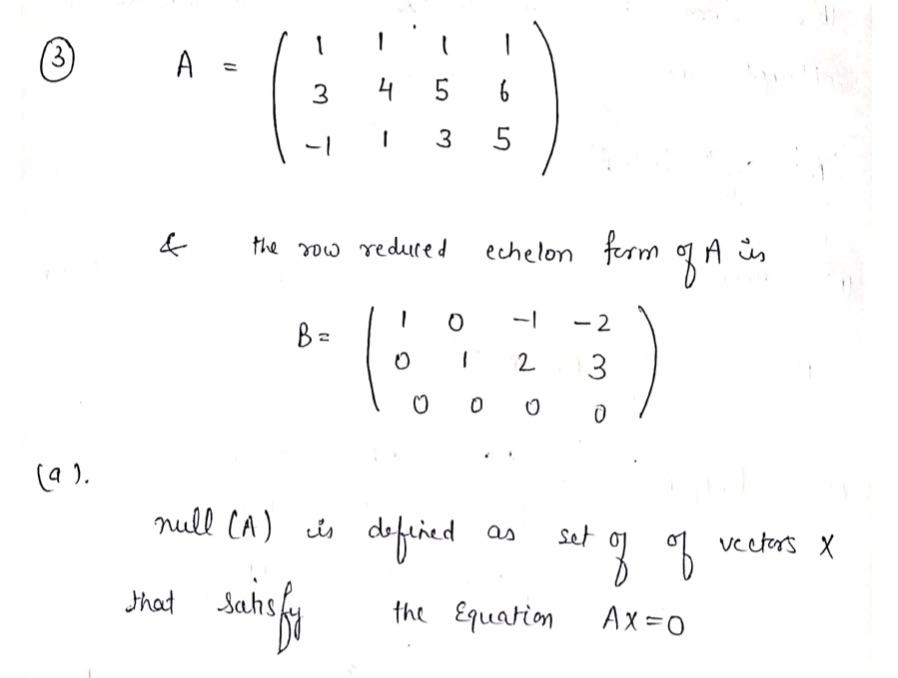 ③ A = ( 1 1 1 1
3 4 5 6
-1 1 3 5 )
& the row reduced echelon form of A is
B = ( 1 0 -1 -2
0 1 2 3
0 0 0 0 )
(a).
null (A) is defined as set of of vectors X
that satisfy the Equation AX=0